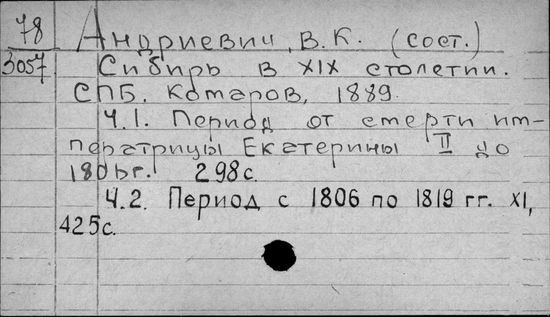 78 Андриевич, В.К. (сост.)
3057 Сибирь в XIX столетии.
СПБ. Комаров, 1889.
Ч.1. Период от смерти им-
ператрицы Екатерины II до
1806 г. 298 с.
Ч.2. Период с 1806 по 1819 гг. XI,
425 с.